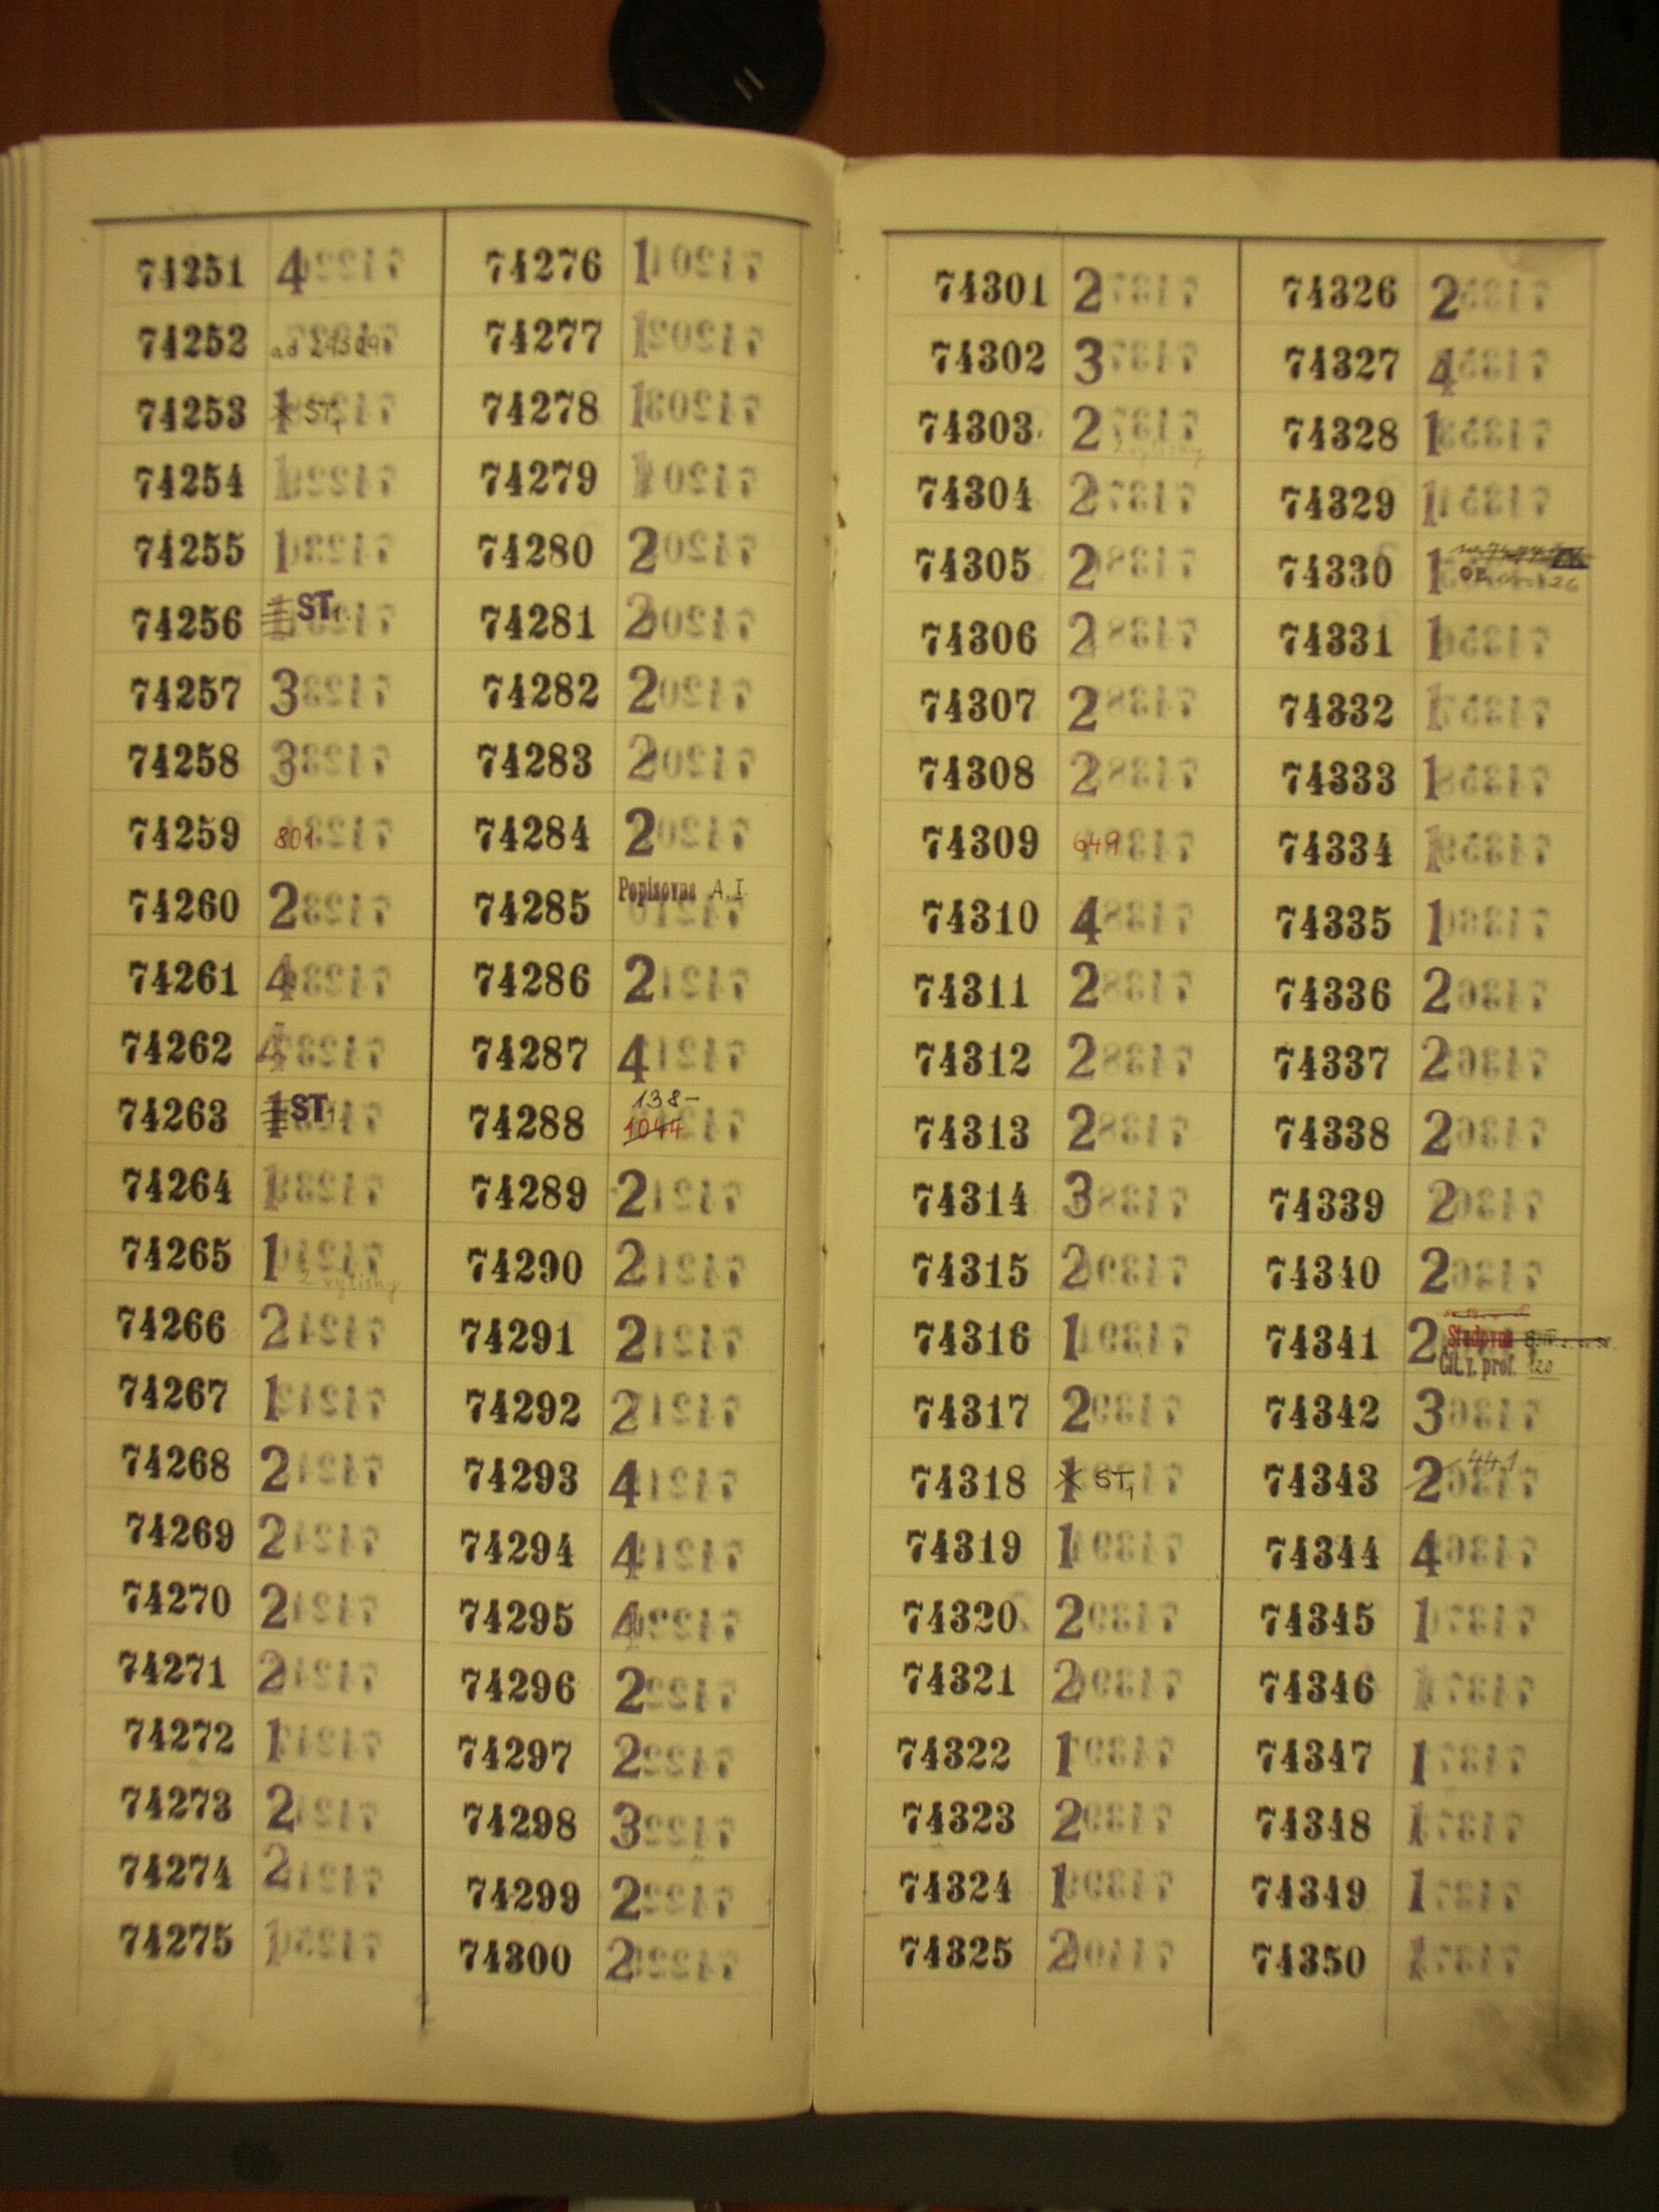 74251 4
74252
74253 1 ST1
74254 1
74255 1
74256 1 ST1.
74257 3
74258 3
74259 801
74260 2
74261 4
74262 4
74263 1 ST1
74264 1
74265 1 2 výtisky
74266 2
74267 1
74268 2
74269 2
74270 2
74271 2
74272 1
74273 2
74274 2
74275 1
74276 1
74277 1
74278 1
74279 1
74280 2
74281 2
74282 2
74283 2
74284 2
74285 Popisovna A.I.
74286 2
74287 4
138-
74288 1044
74289 2
74290 2
74291 2
74292 2
74293 4
74294 4
74295 4
74296 2
74297 2
74298 3
74299 2
74300 2
74301 2
74302 3
74303 2 2 výtisky
74304 2
74305 2
74306 2
74307 2
74308 2
74309 649
74310 4
74311 2
74312 2
74313 2
74314 3
74315 2
74316 1
74317 2
74318 1 ST1
74319 1
74320 2
74321 2
74322 1
74323 2
74324 1
74325 2
74326 2
74327 4
74328 1
74329 1
74330 1
74331 1
74332 1
74333 1
74334 1
74335 1
74336 2
74337 2
74338 2
74339 2
74340 2
74341 2 Studovna
Čít. v. prof. 120
74342 3
74343 2 441
74344 4
74345 1
74346 1
74347 1
74348 1
74349 1
74350 1